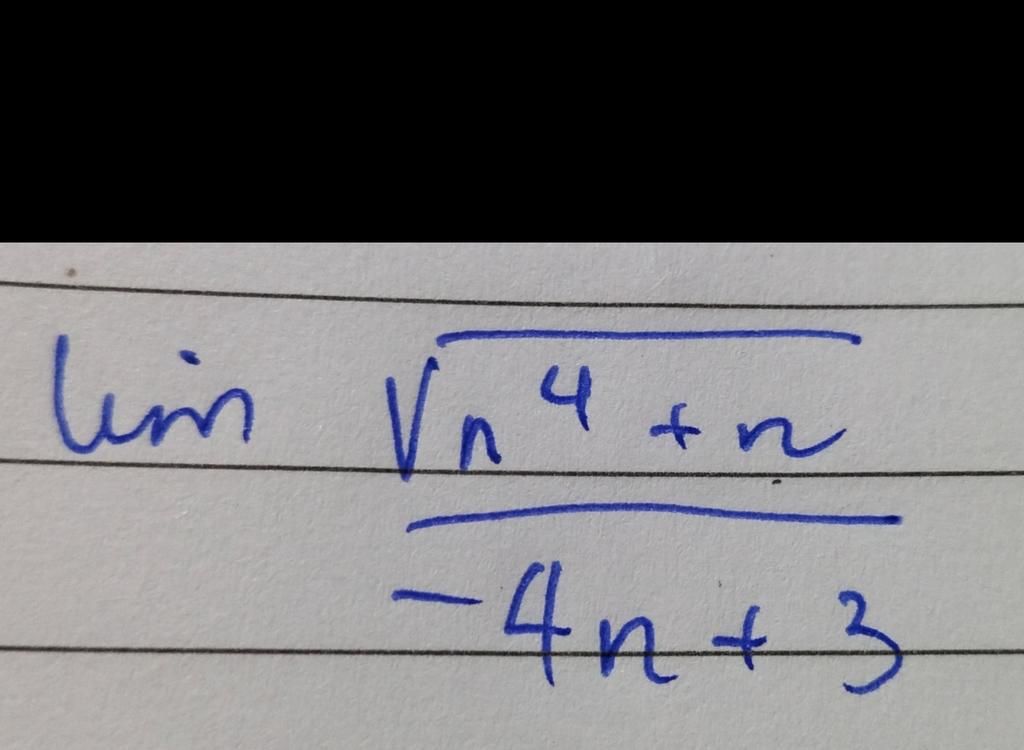 lim √n⁴ + n
-4n + 3